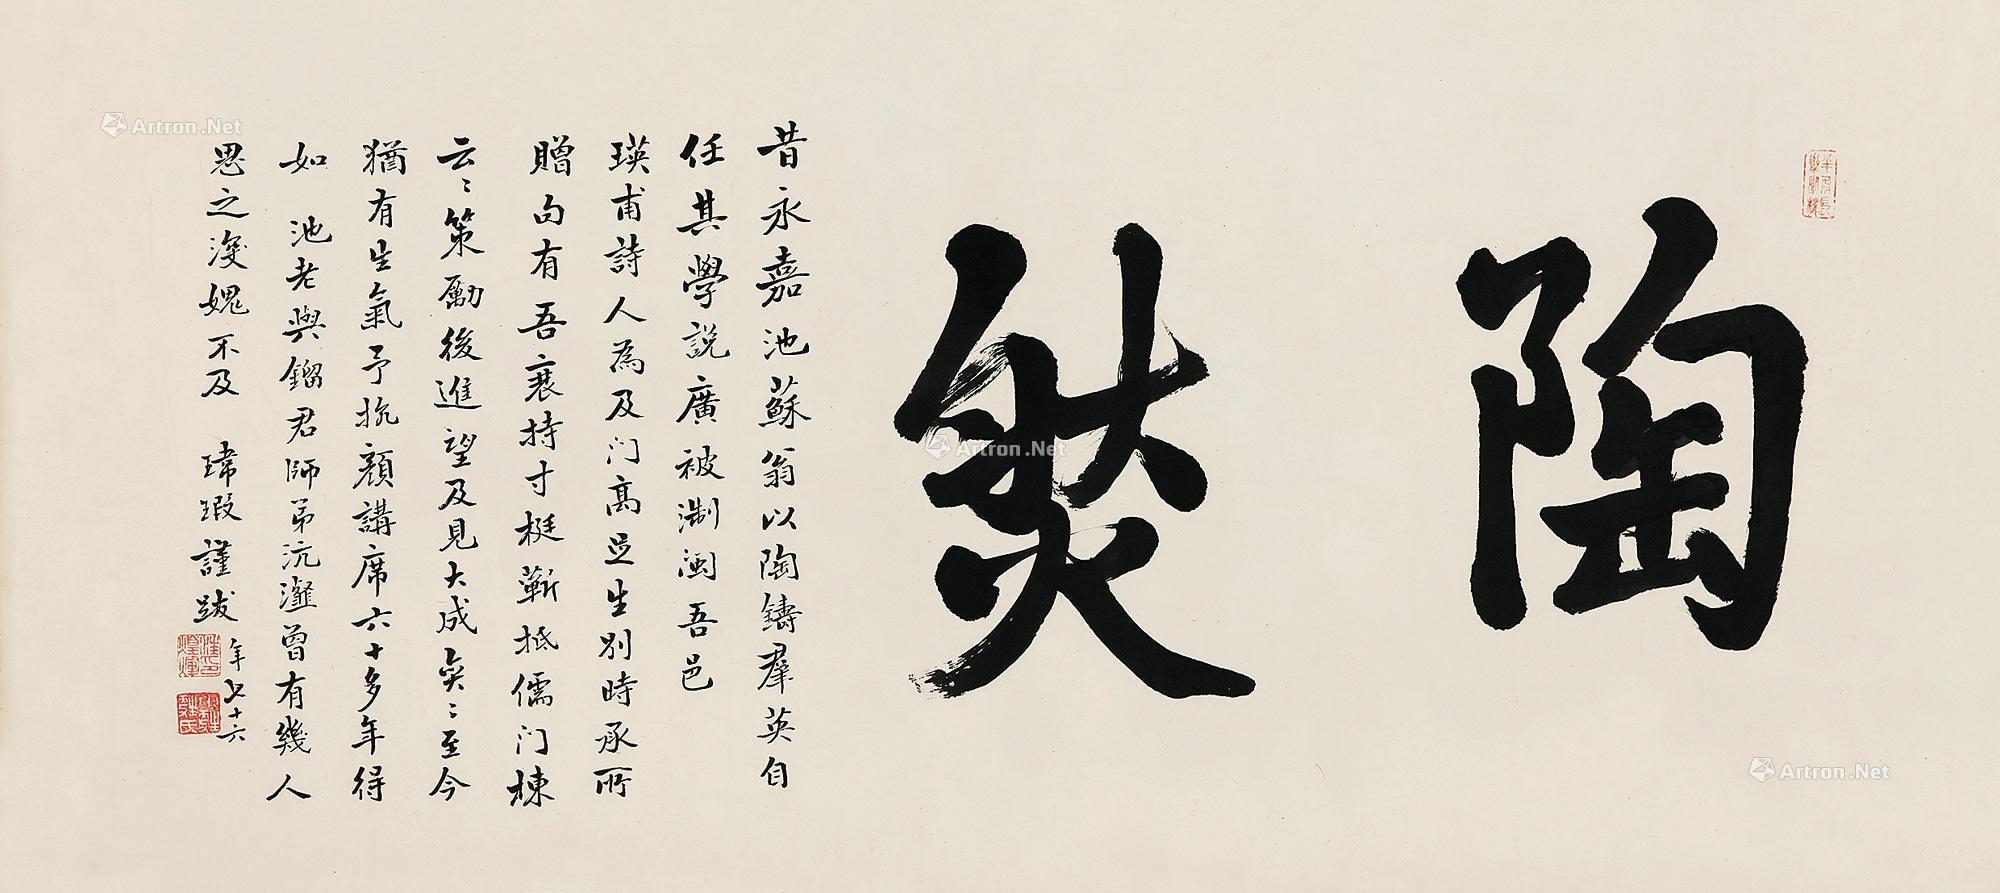 陶然
昔永嘉池蘇翁以陶鑄羣英自
任其學説廣被浙閩吾邑
瑛甫詩人為及门高足生別時承所
贈句有吾衰持寸梃蕲抵儒门棟
云云策勵後進望及見大成矣矣至今
猶有生氣予抗顏講席六十多年得
如池老與鎦君師弟沆瀣曾有幾人
思之浚媿不及 瑋瑕謹跋
年七十六
Artron.Net
Artron.Net
Artron.Net
Artron.Net
Artron.Net